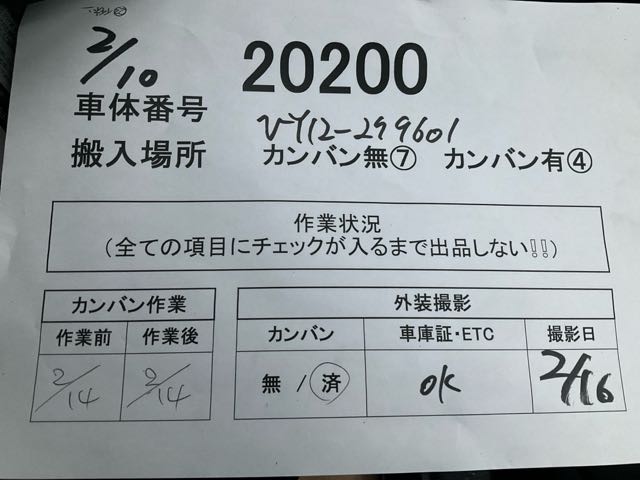 2/10
20200
車体番号 VY12-299601
搬入場所 カンバン無⑦ カンバン有④
作業状況
(全ての項目にチェックが入るまで出品しない!!)
カンバン作業
作業前 作業後
2/14 2/14
外装撮影
カンバン 車庫証・ETC 撮影日
無 / 済 OK 2/16